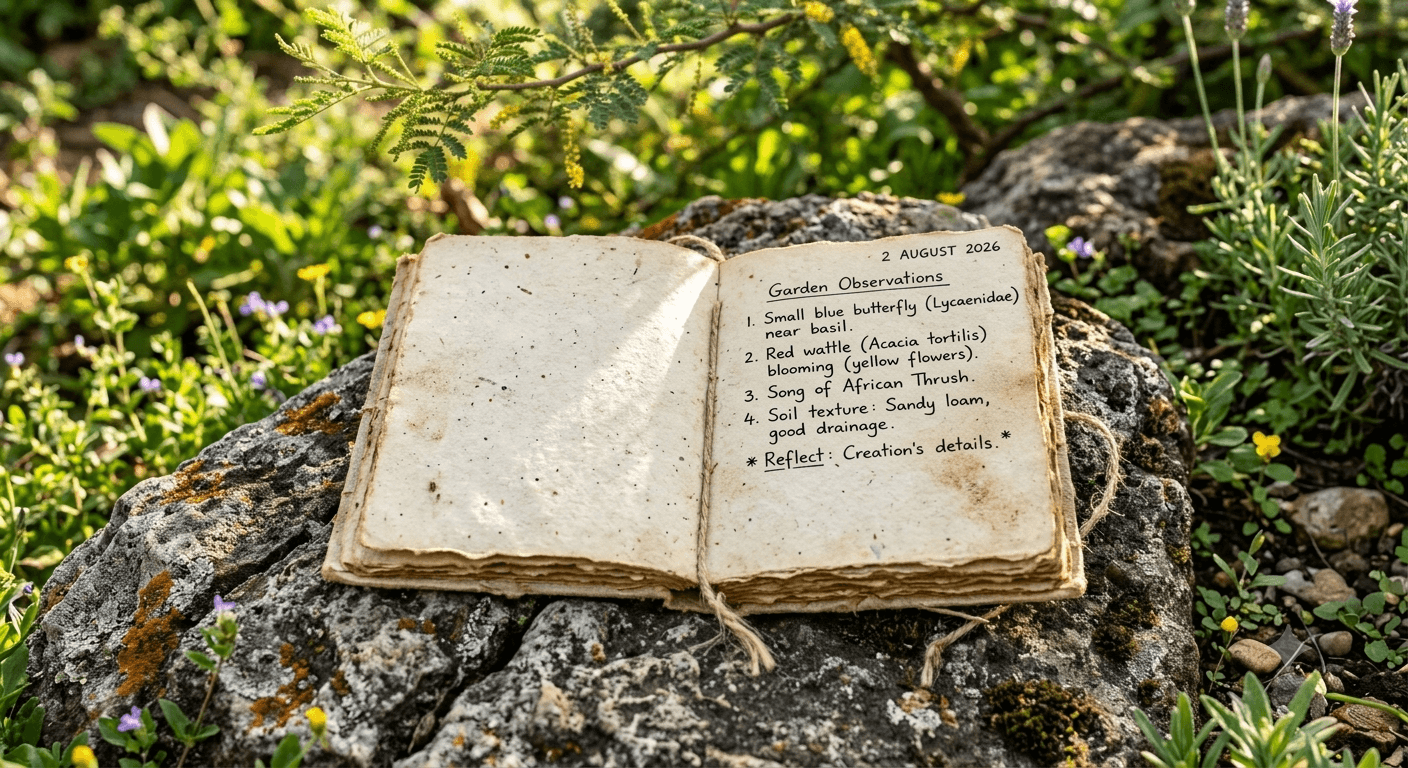 2 AUGUST 2026
Garden Observations
1. Small blue butterfly (Lycaenidae)
near basil.
2. Red wattle (Acacia tortilis)
blooming (yellow flowers).
3. Song of African Thrush.
4. Soil texture: Sandy loam,
good drainage.
* Reflect: Creation's details.*